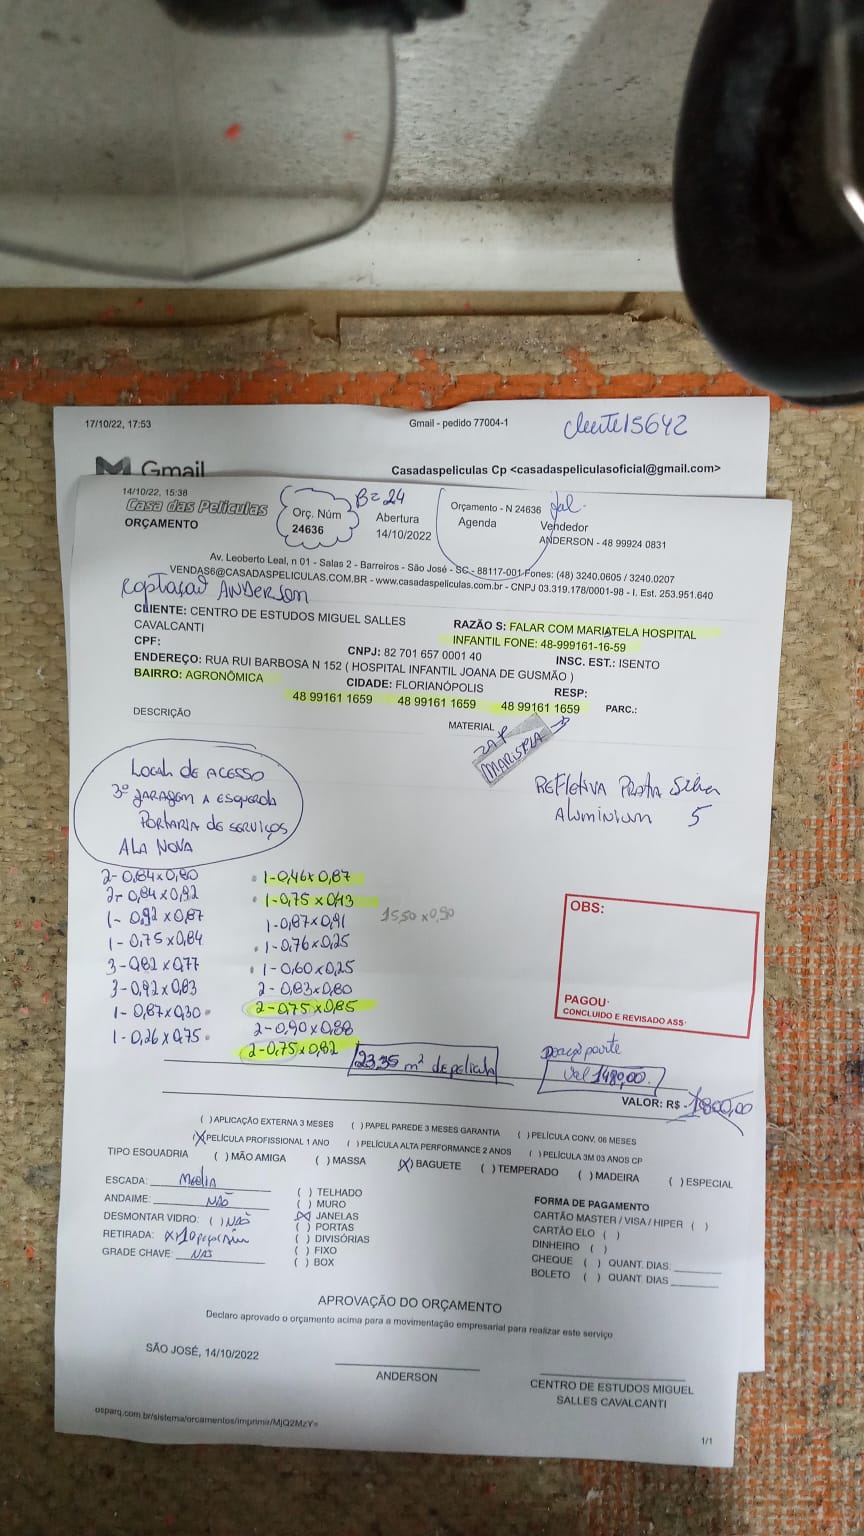 17/10/22, 17:53
Gmail - pedido 77004-1
cliente 15642
Gmail
Casadaspeliculas Cp <casadaspeliculasoficial@gmail.com>
14/10/22, 15:38
Casa das Películas
ORÇAMENTO
Orç. Núm
24636
B=24
Abertura
14/10/2022
Orçamento - N 24636
Agenda
Vendedor
ANDERSON - 48 99924 0831
Av. Leoberto Leal, n 01 - Salas 2 - Barreiros - São José - SC - 88117-001 Fones: (48) 3240.0605 / 3240.0207
VENDAS6@CASADASPELICULAS.COM.BR - www.casadaspeliculas.com.br - CNPJ 03.319.178/0001-98 - I. Est. 253.951.640
Captação ANDERSON
CLIENTE: CENTRO DE ESTUDOS MIGUEL SALLES
CAVALCANTI
RAZÃO S: FALAR COM MARISTELA HOSPITAL
INFANTIL FONE: 48-999161-16-59
CPF:
CNPJ: 82 701 657 0001 40
INSC. EST.: ISENTO
ENDEREÇO: RUA RUI BARBOSA N 152 ( HOSPITAL INFANTIL JOANA DE GUSMÃO )
BAIRRO: AGRONÔMICA
CIDADE: FLORIANÓPOLIS
RESP:
48 99161 1659 48 99161 1659 48 99161 1659
PARC.:
DESCRIÇÃO
MATERIAL
LOCAL DE ACESSO
3º GARAGEM A ESQUERDA
PORTARIA DE SERVIÇOS
ALA NOVA
REFLETIVA PRATA Silver
Aluminium 5
2-0,84x0,80
2-0,84x0,92
1-0,92x0,87
1-0,75x0,84
3-0,82x0,77
3-0,92x0,83
1-0,87x0,30
1-0,26x0,75
1-0,46x0,87
1-0,75x0,43
1-0,87x0,91
1-0,76x0,25
1-0,60x0,25
2-0,83x0,80
2-0,75x0,85
2-0,90x0,88
2-0,75x0,82
15,50x0,50
23,35 m² de pelicula
OBS:
PAGOU:
CONCLUIDO E REVISADO ASS:
Val 1480,00
VALOR: R$ - 1800,00
( ) APLICAÇÃO EXTERNA 3 MESES ( ) PAPEL PAREDE 3 MESES GARANTIA ( ) PELÍCULA CONV. 06 MESES
(X) PELÍCULA PROFISSIONAL 1 ANO ( ) PELÍCULA ALTA PERFORMANCE 2 ANOS ( ) PELÍCULA 3M 03 ANOS CP
TIPO ESQUADRIA ( ) MÃO AMIGA ( ) MASSA (X) BAGUETE ( ) TEMPERADO ( ) MADEIRA ( ) ESPECIAL
ESCADA: Media
ANDAIME: NÃO
DESMONTAR VIDRO: ( ) NÃO
RETIRADA:
GRADE CHAVE: NÃO
( ) TELHADO
( ) MURO
(X) JANELAS
( ) PORTAS
( ) DIVISÓRIAS
( ) FIXO
( ) BOX
FORMA DE PAGAMENTO
CARTÃO MASTER / VISA / HIPER ( )
CARTÃO ELO ( )
DINHEIRO ( )
CHEQUE ( ) QUANT. DIAS:
BOLETO ( ) QUANT. DIAS
APROVAÇÃO DO ORÇAMENTO
Declaro aprovado o orçamento acima para a movimentação empresarial para realizar este serviço
SÃO JOSÉ, 14/10/2022
ANDERSON
CENTRO DE ESTUDOS MIGUEL
SALLES CAVALCANTI
osparq.com.br/sistema/orcamentos/imprimir/MjQ2MzY=
1/1